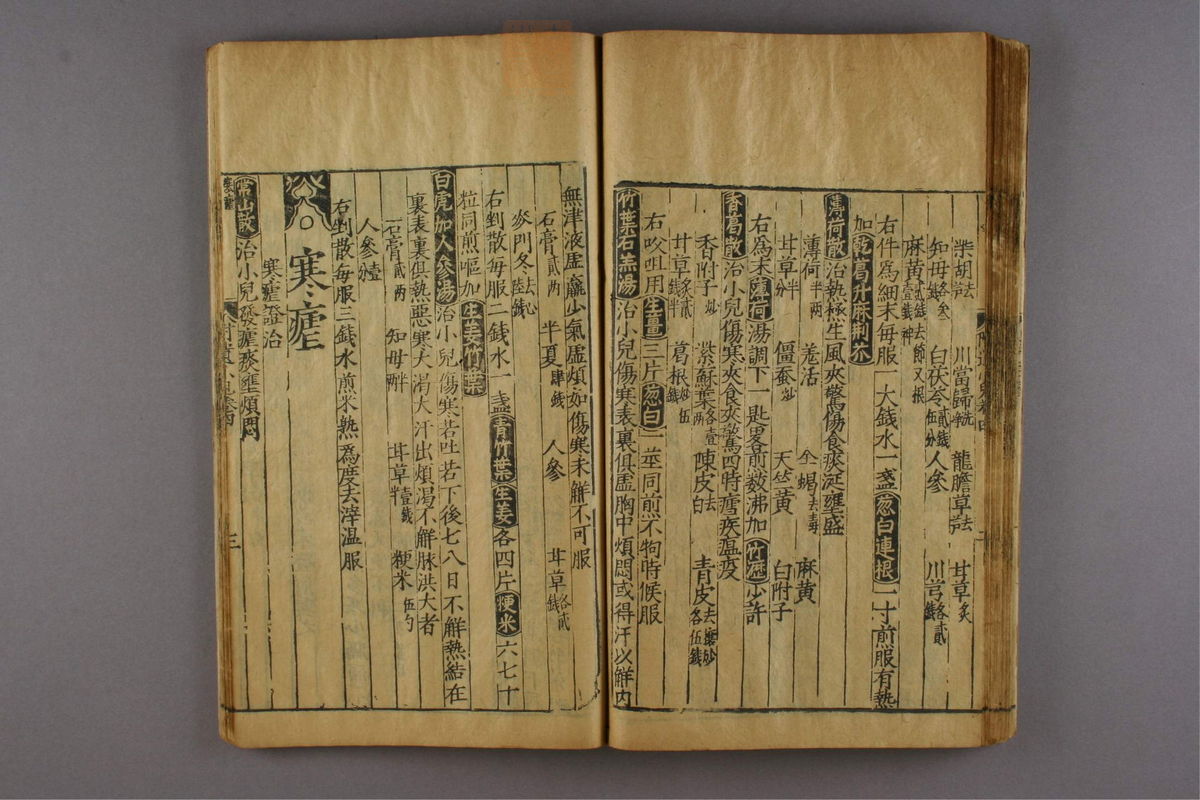 柴胡 川當歸 龍膽草 甘草炙
知母各 白茯苓貳錢伍分 人參 川芎各貳錢
麻黃 去節又根
右件爲細末每服一大錢水一盞葱白連根二寸煎服有熱
加乾葛升麻荆芥
薄荷散治熱極生風夾驚傷食痰涎壅盛
薄荷半兩 羗活 全蝎去毒 麻黃
甘草半分 僵蚕炒 天竺黃 白附子
右為末薄荷湯調下一匙畧煎数沸加竹瀝少許
香葛散治小兒傷寒夾食夾驚四時瘟疾瘟疫
香附子炒 紫蘇葉各壹兩 陳皮去白 青皮去穰炒各伍錢
甘草炙貳錢半 葛根炒伍錢
右㕮咀用生薑三片葱白一莖同煎不拘時候服
竹葉石羔湯治小兒傷寒表裏俱虛胸中煩悶或得汗以觧内
無津液虛羸少氣虛煩如傷寒未觧不可服
石膏貳兩 半夏肆錢 人參 甘草各貳錢
麥門冬去心陸錢
右剉散每服二錢水一盞青竹葉生姜各四片粳米六七十
粒同煎嘔加生姜竹葉
白虎加人參湯治小兒傷寒若吐若下後七八日不觧熱結在
裏表裏俱熱惡寒大渴大汗出煩渴不觧脉洪大者
石膏貳兩 知母半兩 甘草壹錢半 粳米伍勺
人參壹錢
右剉散每服三錢水煎米熟爲度去滓温服
寒瘧
寒瘧證治
常山散治小兒發瘧痰壅煩悶